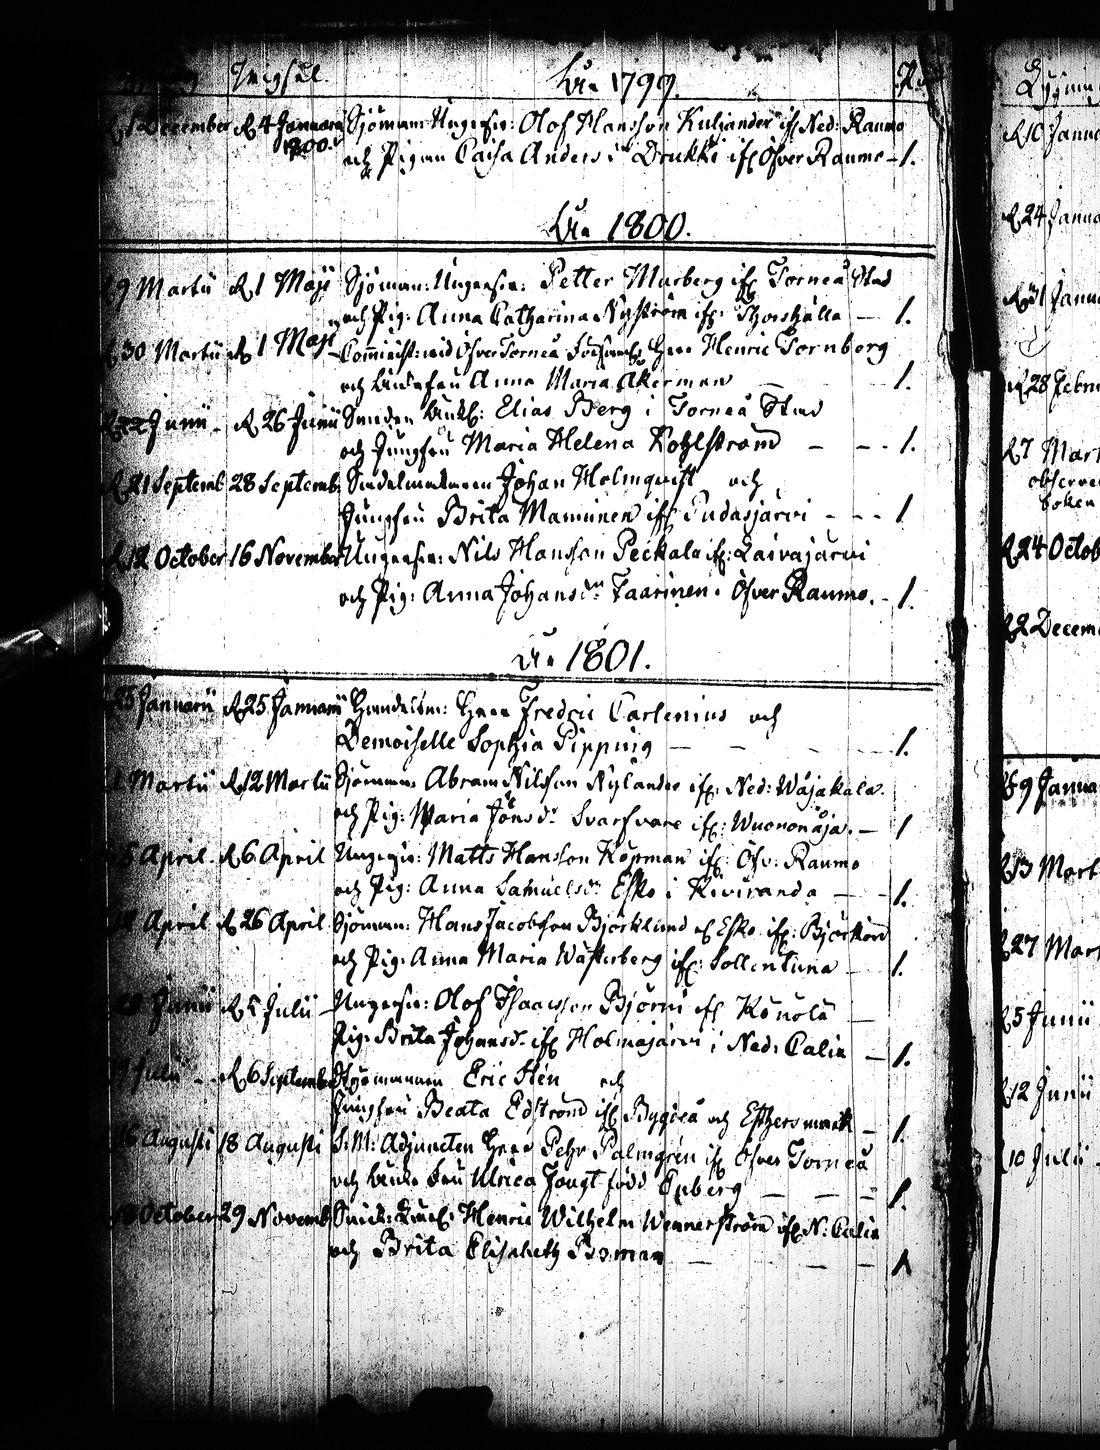 Vigsel. Åhr 1799. Par
December d. 4 Januarii Sjöman: Ungersv: Olof Hansson Kuljander ifr. Ned: Raumo
1800. och Pigan Caisa Anders dr Drukki ifr. Öfver Raumo – 1.
Åhr 1800.
9 Martii d. 1 Maji Sjöman: Ungersv: Petter Murberg ifr. Torneå Stad
och Pig: Anna Catharina Nyström ifr. Thorshälla — 1.
30 Martii d. 1 Maji Comminist: vid Öfver Torneå Herr Henric Tornberg
och Enkefru Anna Maria Åkerman — 1.
Junii d. 26 Junii Smeden Enkl: Elias Berg i Torneå Stad
och Jungfru Maria Helena Kohlström — 1.
d. 21 Septemb 28 Septemb. Sadelmakaren Johan Holmqvist och
Jungfru Brita Mamunen ifr. Pudasjärvi - - - 1.
d. 12 October 16 November Ungersv: Nils Hansson Peckala ifr. Raivajärvi
och Pig: Anna Johans dr Taarinen i Öfver Raumo. – 1.
Åhr 1801.
25 Januarii d. 25 Januarii Handelsm: Herr Fredric Carlenius och
Demoiselle Sophia Pipping — 1.
1 Martii d. 12 Martii Sjöman Abram Nilsson Nylander ifr. Ned: Wojakala.
och Pig: Maria Jöns dr Svarfvare ifr. Wuononoja. — 1
5 April. d. 6 April Ungersv: Matts Hansson Köpman ifr. Öfv: Raumo
och Pig: Anna Samuels dr Esko i Kiviranda — 1.
12 April d. 26 April Sjöman: Hans Jacobsson Björklund el. Esko ifr. Björkön
och Pig: Anna Maria Wästerberg ifr. Sollentuna — 1.
Junii d. 5 Julii – Ungersv: Olof Isaacsson Björni ifr. Könölä —
Pig: Brita Johansd. ifr. Holmajärvi i Ned: Calix — 1.
Julii d. 6 September Eric Stén och
Jungfru Beata Edström ifr. Bygdeå och Esthersmark — 1.
16 Augusti 18 Augusti S.M: Adjuncten Herr Pehr Palmgrén ifr. Öfver Torneå
och Enke Fru Ulrica Fougt född Enberg — 1.
18 October 29 Novemb. Snick: Enkl: Henric Wilhelm Wennerström ifr. N: Calix
och Brita Elisabeth Boman — 1
d. 10 Janua
d. 24 Janua
d. 31 Janua
d. 28 Febru
d. 7 Mart
observe
boken
d. 24 Octob
d. 2 Decem
d. 9 Janua
d. 13 Mart
d. 27 Mart
d. 5 Junii
d. 12 Junii
10 Julii